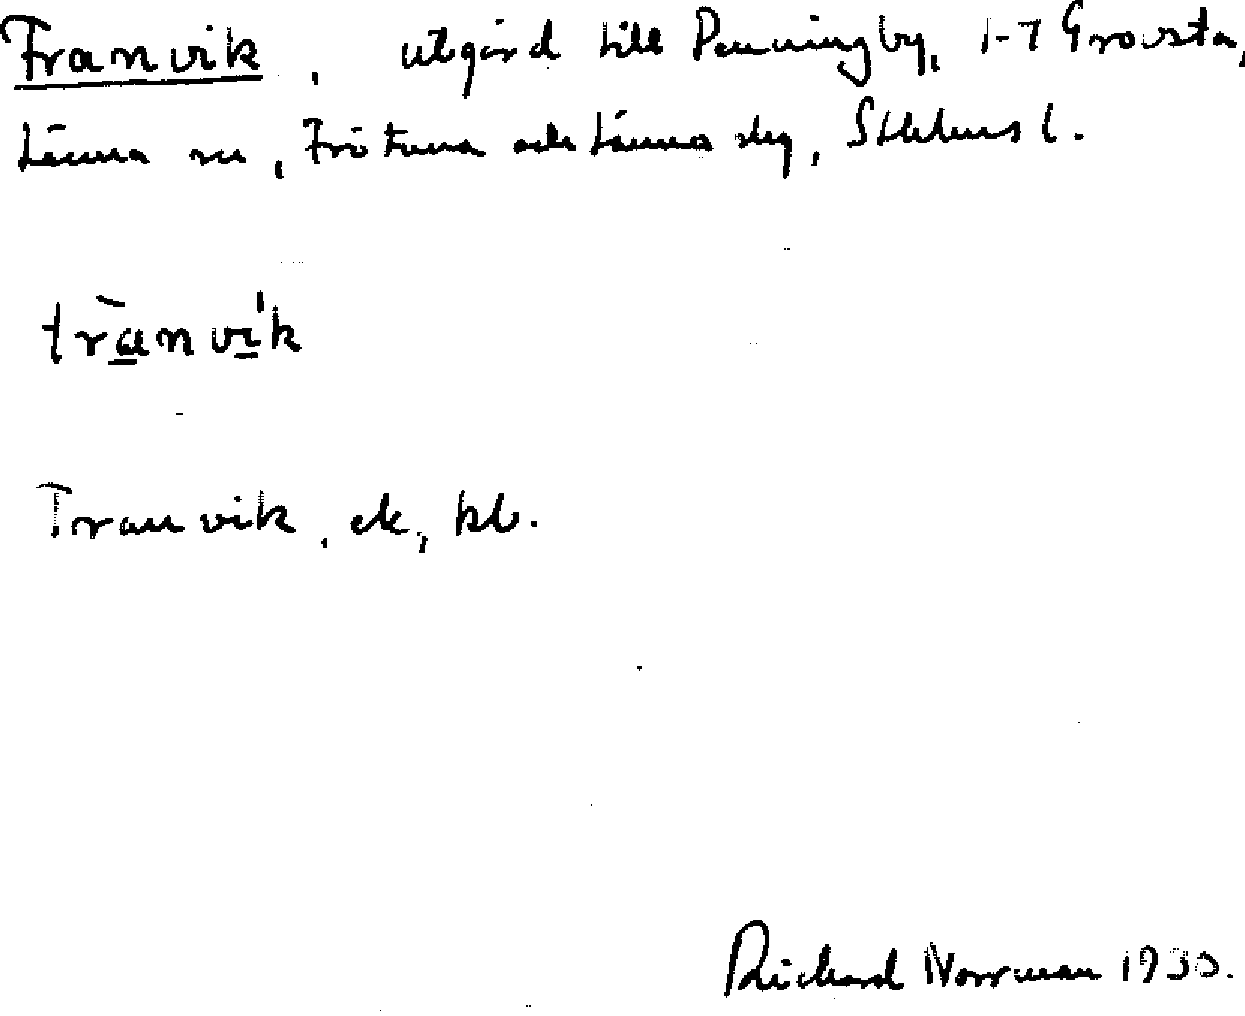 Tranvik, utgård till Penningby, 1-7 Grovsta,
Länna sn, Frötuna och Länna slg, Sthlms l.
trànvi̍k
Tranvik, ek, kb.
Richard Norrman 1930.